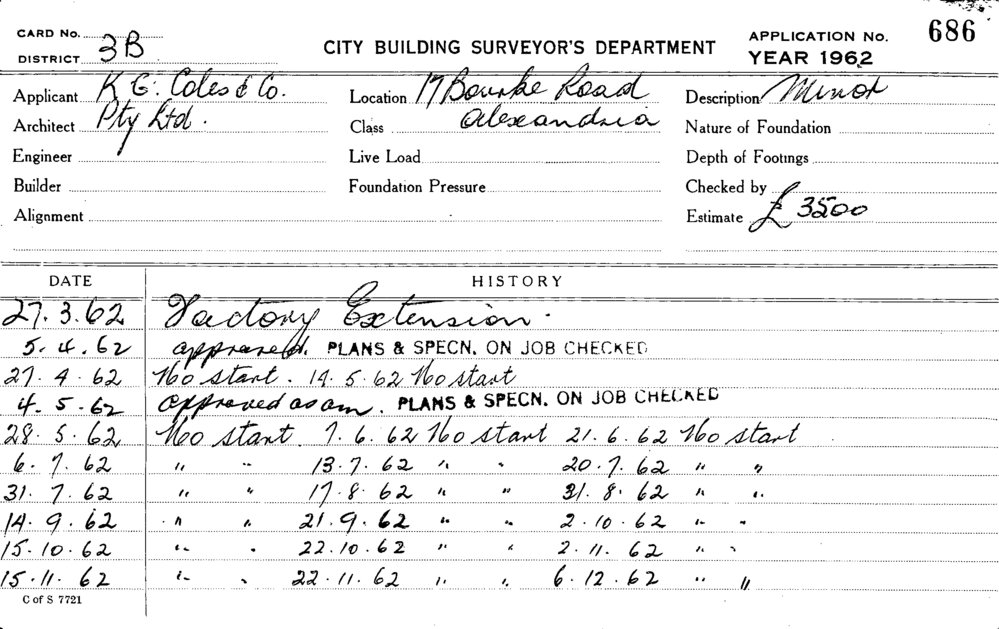 CARD No. 3B
DISTRICT
CITY BUILDING SURVEYOR'S DEPARTMENT
APPLICATION No. 686
YEAR 1962
Applicant K G. Coles & Co.
Location 17 Bourke Road
Description Minor
Architect Pty Ltd.
Class Alexandria
Nature of Foundation
Engineer
Live Load
Depth of Footings
Builder
Foundation Pressure
Checked by
Alignment
Estimate £ 3500
DATE HISTORY
27.3.62 Factory Extension.
5.4.62 approved. PLANS & SPECN. ON JOB CHECKED
27.4.62 No start. 14.5.62 No start
4.5.62 approved as am. PLANS & SPECN. ON JOB CHECKED
28.5.62 No start. 7.6.62 No start 21.6.62 No start
6.7.62 " " 13.7.62 " " 20.7.62 " "
31.7.62 " " 17.8.62 " " 31.8.62 " "
14.9.62 " " 21.9.62 " " 2.10.62 " "
15.10.62 " " 22.10.62 " " 2.11.62 " "
15.11.62 " " 22.11.62 " " 6.12.62 " "
C of S 7721